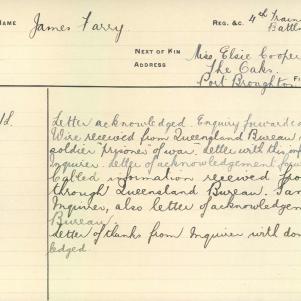 NAME James Farry REG. &C. 4th Train
Battl
NEXT OF KIN Miss Elsie Cooper
ADDRESS The Oaks
Port Broughton
Letter acknowledged. Enquiry forwarded
Wire received from Queensland Bureau
soldier "prisoner of war". Letter with this inf
Inquirer. Letter of acknowledgement
Cabled information received fro
through Queensland Bureau.
Inquirer, also letter of acknowledgem
Bureau.
Letter of thanks from Inquirer with don
ledged